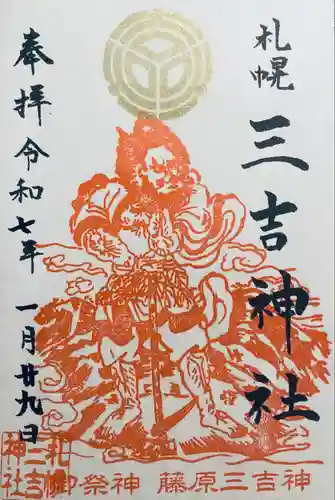 札幌
三吉神社
奉拝
令和七年
一月廿九日
札幌
三吉
神社
御祭神 藤原三吉神